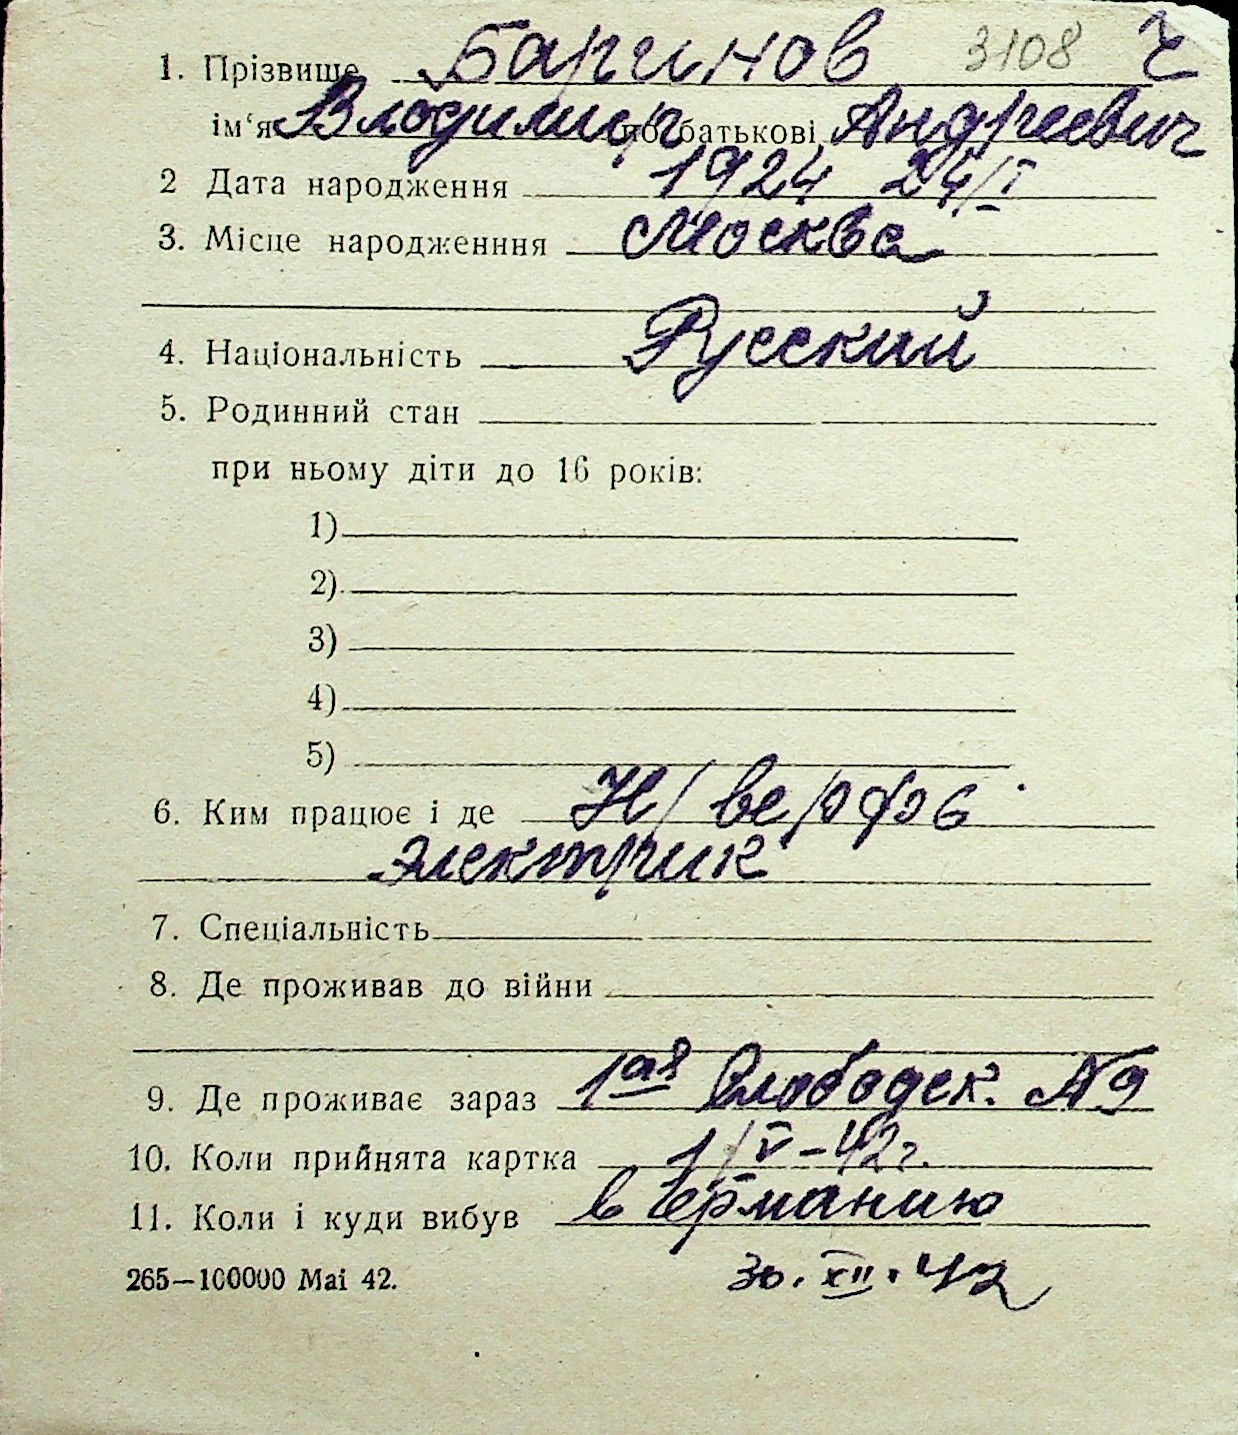 1. Прізвище Баринов 3108 Ч
ім‘я Владимир по батькові Андреевич
2 Дата народження 1924 24/I
3. Місце народженння Москва
4. Національність Русский
5. Родинний стан
при ньому діти до 16 років:
1)
2)
3)
4)
5)
6. Ким працює і де Н/верфь
электрик
7. Спеціальність
8. Де проживав до війни
9. Де проживає зараз 1ая Слободск. № 9
10. Коли прийнята картка 1/V-42г.
11. Коли і куди вибув в Германию
265—100000 Mai 42. 30.XII.42